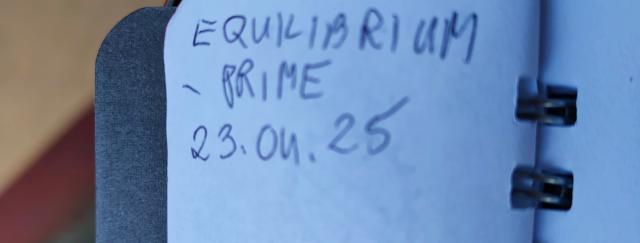 EQUILIBRIUM
- PRIME
23.04.25